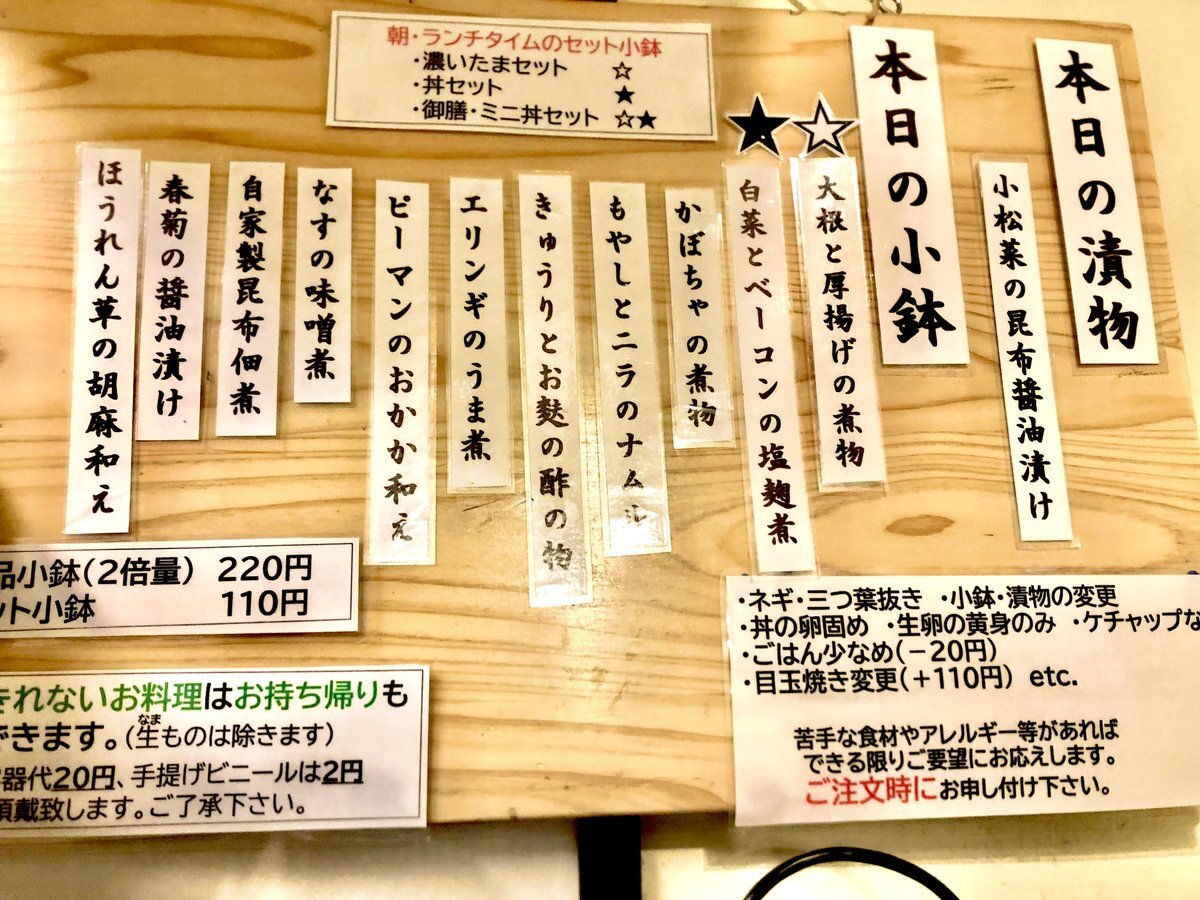 朝・ランチタイムのセット小鉢
・濃いたまセット ☆
・丼セット ★
・御膳・ミニ丼セット ☆★
本日の漬物
小松菜の昆布醤油漬け
本日の小鉢
☆
大根と厚揚げの煮物
★
白菜とベーコンの塩麹煮
かぼちゃの煮物
もやしとニラのナムル
きゅうりとお麩の酢の物
エリンギのうま煮
ピーマンのおかか和え
なすの味噌煮
自家製昆布佃煮
春菊の醤油漬け
ほうれん草の胡麻和え
品小鉢(2倍量) 220円
ット小鉢 110円
きれないお料理はお持ち帰りも
できます。(生ものは除きます)
なま
器代20円、手提げビニールは2円
頂戴致します。ご了承下さい。
・ネギ・三つ葉抜き ・小鉢・漬物の変更
・丼の卵固め ・生卵の黄身のみ ・ケチャップな
・ごはん少なめ(－20円)
・目玉焼き変更(＋110円) etc.
苦手な食材やアレルギー等があれば
できる限りご要望にお応えします。
ご注文時にお申し付け下さい。